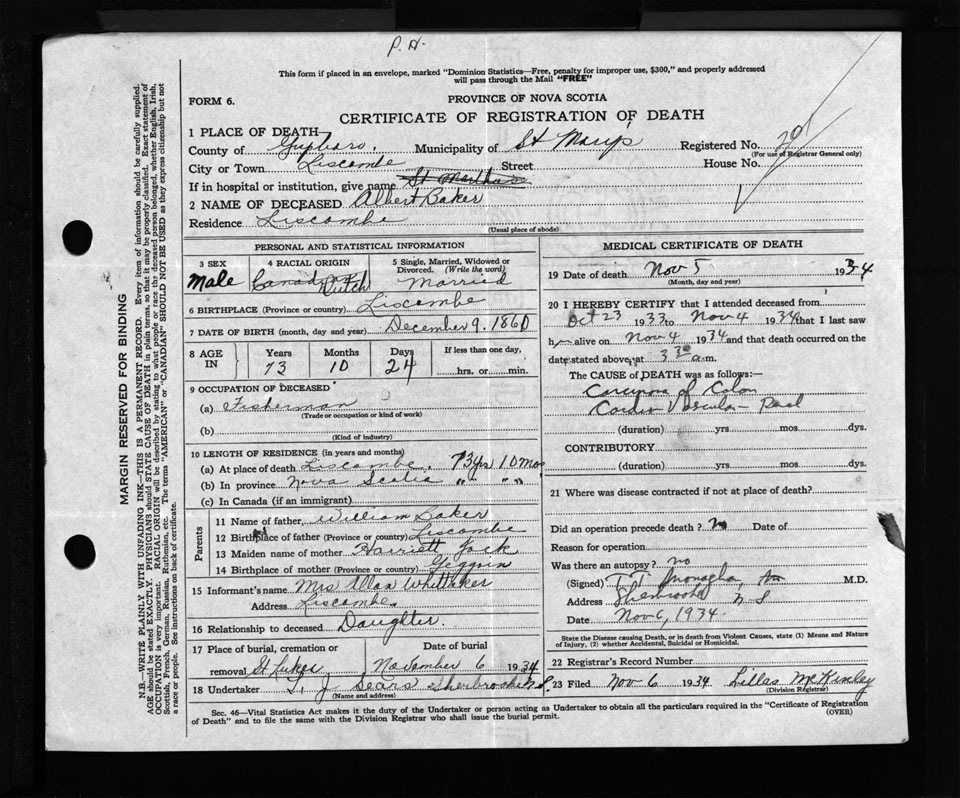 P.H.
This form if placed in an envelope, marked "Dominion Statistics—Free, penalty for improper use, $300," and properly addressed
will pass through the Mail "FREE"
FORM 6.
PROVINCE OF NOVA SCOTIA
CERTIFICATE OF REGISTRATION OF DEATH
1 PLACE OF DEATH
County of Guysboro, Municipality of St Mary's Registered No.
(For use of Registrar General only)
City or Town Liscombe Street House No.
If in hospital or institution, give name St Martha's
2 NAME OF DECEASED Albert Baker
Residence Liscombe
(Usual place of abode)
PERSONAL AND STATISTICAL INFORMATION
3 SEX Male
4 RACIAL ORIGIN Dutch
5 Single, Married, Widowed or Divorced. (Write the word) Married
6 BIRTHPLACE (Province or country) Liscombe
7 DATE OF BIRTH (month, day and year) December 9, 1860
8 AGE IN Years 73 Months 10 Days 24 If less than one day, hrs. or min.
9 OCCUPATION OF DECEASED
(a) Fisherman
(Trade or occupation or kind of work)
(b)
(Kind of industry)
10 LENGTH OF RESIDENCE (in years and months)
(a) At place of death Liscombe. 73 yrs 10 mos
(b) In province Nova Scotia " " " "
(c) In Canada (if an immigrant)
Parents
11 Name of father, William Baker
12 Birthplace of father (Province or country) Liscombe
13 Maiden name of mother Harriett Jack
14 Birthplace of mother (Province or country)
15 Informant's name Mrs Allan Whittaker
Address Liscombe
16 Relationship to deceased Daughter.
17 Place of burial, cremation or removal St Lukes Date of burial November 6 1934
18 Undertaker S. J. Sears Sherbrooke N.S.
(Name and address)
MEDICAL CERTIFICATE OF DEATH
19 Date of death Nov 5 1934
(Month, day and year)
20 I HEREBY CERTIFY that I attended deceased from
Oct 23 1933 to Nov 4 1934 that I last saw
h alive on Nov 4 1934 and that death occurred on the
date stated above, at 3 30 a.m.
The CAUSE of DEATH was as follows:—
Carcinoma of Colon
Cardio Vascular - Renal
(duration) yrs mos dys.
CONTRIBUTORY
(duration) yrs mos dys.
21 Where was disease contracted if not at place of death?
Did an operation precede death? No Date of
Reason for operation
Was there an autopsy? no
(Signed) M.D.
Address Sherbrooke N S
Date Nov 6, 1934.
State the Disease causing Death, or in death from Violent Causes, state (1) Means and Nature
of Injury, (2) whether Accidental, Suicidal or Homicidal.
22 Registrar's Record Number
23 Filed Nov 6 1934 Lillas McKinlay
(Division Registrar)
Sec. 46—Vital Statistics Act makes it the duty of the Undertaker or person acting as Undertaker to obtain all the particulars required in the "Certificate of Registration
of Death" and to file the same with the Division Registrar who shall issue the burial permit.
(OVER)
MARGIN RESERVED FOR BINDING
N.B.—WRITE PLAINLY WITH UNFADING INK—THIS IS A PERMANENT RECORD. Every item of information should be carefully supplied.
AGE should be stated EXACTLY. PHYSICIANS should STATE CAUSE OF DEATH in plain terms, so that it may be properly classified. Exact statement of
OCCUPATION is very important. RACIAL ORIGIN will be described by stating to what people or race the deceased person belonged, whether English, Irish,
Scottish, French, German, Russian, Ruthenian, etc. The terms "AMERICAN" or "CANADIAN" SHOULD NOT BE USED as they express citizenship but not
a race or people. See instructions on back of certificate.